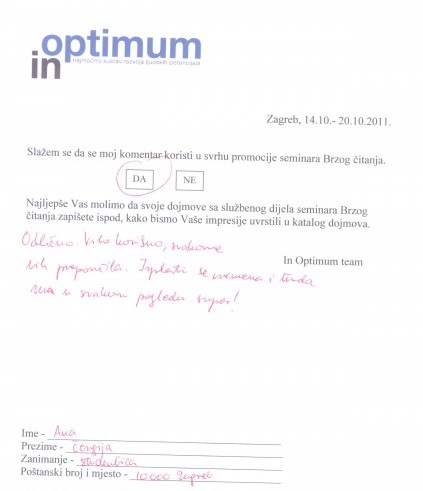 optimum
in
najmoćniji sustav razvoja ljudskih potencijala
Zagreb, 14.10.- 20.10.2011.
Slažem se da se moj komentar koristi u svrhu promocije seminara Brzog čitanja.
DA NE
Najljepše Vas molimo da svoje dojmove sa službenog dijela seminara Brzog
čitanja zapišete ispod, kako bismo Vaše impresije uvrstili u katalog dojmova.
Odlično. Vrlo korisno, svakome
In Optimum team
bih preporučila. Isplati se vremena i truda
u svakom pogledu super!
Ime - Ana
Prezime -
Zanimanje - studentica
Poštanski broj i mjesto - 10000 Zagreb